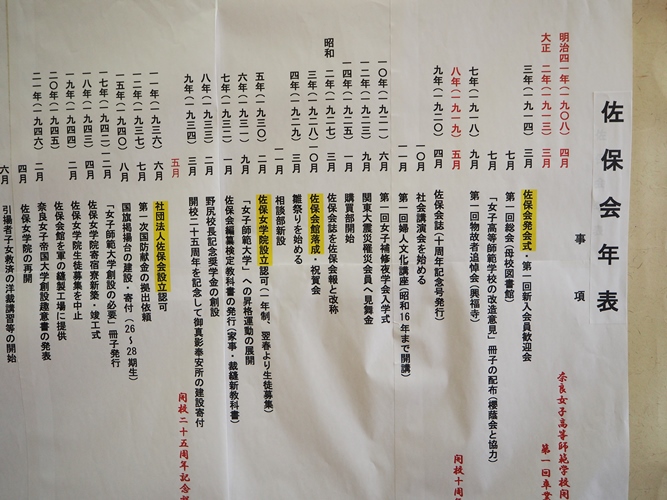 佐保会年表
事項
明治四一年(一九〇八) 四月 奈良女子高等師範学校開
大正 二年(一九一三) 三月 第一回卒業
三年(一九一四) 三月 佐保会発会式・第一回新入会員歓迎会
七月 第一回総会(母校図書館)
七月 「女子高等師範学校の改造意見」冊子の配布(櫻蔭会と協力)
七年(一九一八) 九月 第一回物故者追悼会(興福寺)
八年(一九一九) 五月 開校十周年
九年(一九二〇) 四月 佐保会誌(十周年記念号発行)
一〇月 社会講演会を始める
一一月 第一回婦人文化講座(昭和16年まで開講)
一〇年(一九二一) 六月 第一回女子補修夜学会入学式
一二年(一九二三) 九月 関東大震災罹災会員へ見舞金
一四年(一九二五) 一月 購買部開始
昭和 二年(一九二七) 一二月 佐保会誌を佐保会報と改称
三年(一九二八) 一〇月 佐保会館落成・祝賀会
四年(一九二九) 三月 雛祭りを始める
一月 相談部新設
五年(一九三〇) 二月 佐保女学院設立認可(一年制、翌春より生徒募集)
六年(一九三一) 九月 「女子師範大学」への昇格運動の展開
七年(一九三二) 一月 佐保会編纂検定教科書の発行(家事・裁縫新教科書)
八年(一九三三) 二月 野尻校長記念奨学金の創設
九年(一九三四) 三月 開校二十五周年を記念して御真影奉安所の建設寄付
五月 開校二十五周年記念
一一年(一九三六) 六月 社団法人佐保会設立認可
一二年(一九三七) 七月 第一次国防献金の拠出依頼
一五年(一九四〇) 八月 国旗掲揚台の建設・寄付(26~28期生)
一七年(一九四二) 二月 「女子師範大学創設の必要」冊子発行
一八年(一九四三) 四月 佐保女学院寄宿寮新築・竣工式
一九年(一九四四) 二月 佐保女学院生徒募集を中止
二〇年(一九四五) 佐保会館を軍の縫製工場に提供
二一年(一九四六) 二月 奈良女子帝国大学創設趣意書の発表
四月 佐保女学院の再開
六月 引揚者子女救済の洋裁講習等の開始